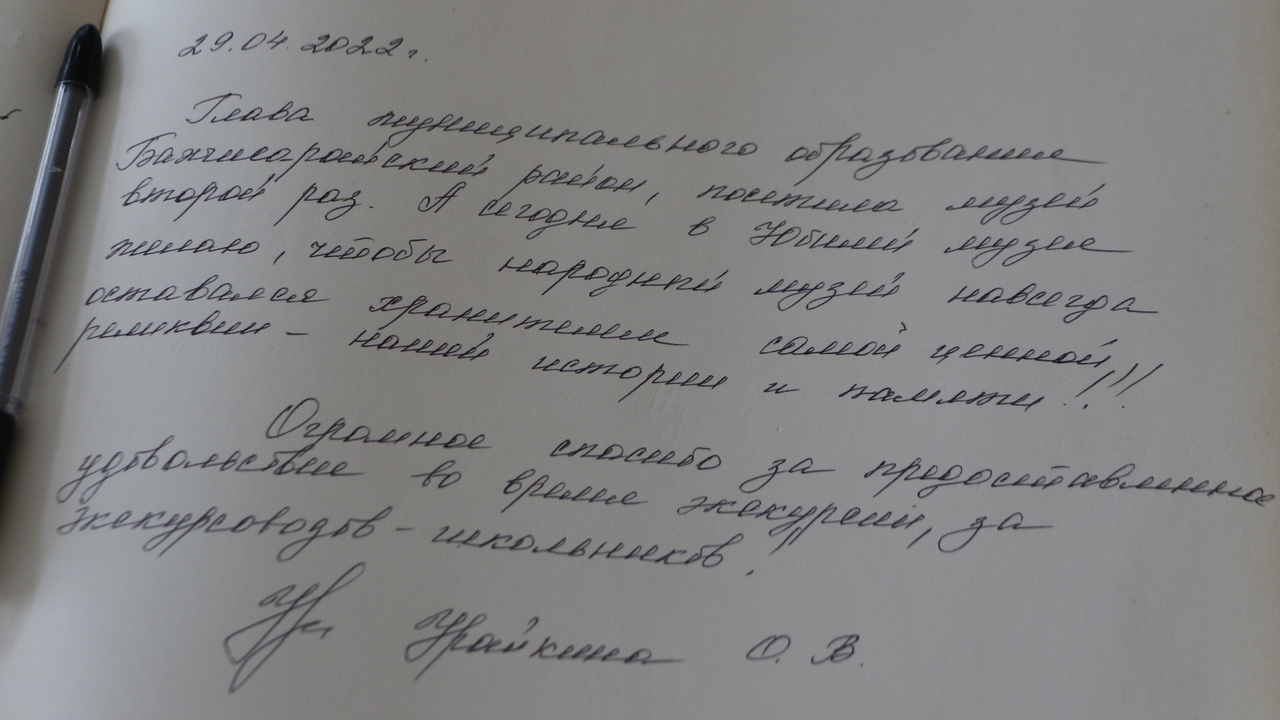 29.04.2022г.
Глава муниципального образования
Бахчисарайский район, посетила музей
второй раз. А сегодня в Юбилей музея
желаю, чтобы народный музей навсегда
оставался хранителем самой ценной
реликвии - нашей истории и памяти!!!
Огромное спасибо за предоставленное
удовольствие во время экскурсии, за
экскурсоводов - школьников!
О. В.